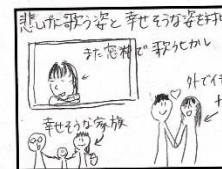 悲しげに歌う姿と幸せそうな姿を対
また窓枠で歌うヒカル
外でイチ
幸せそうな家族